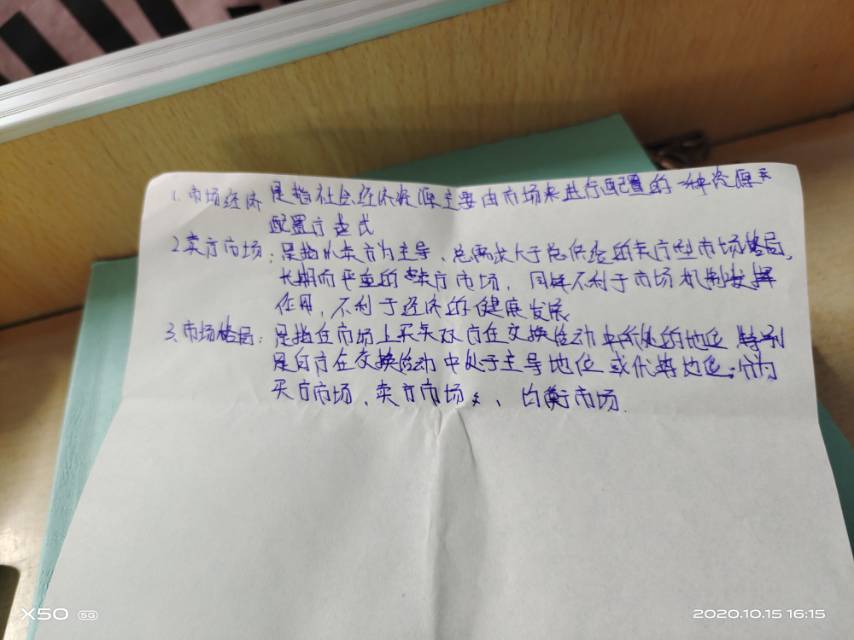 1. 市场经济 是指社会经济资源主要由市场来进行配置的一种资源
配置方式
2.卖方市场：是指以卖方为主导、总需求大于总供给的卖方型市场格局，
长期而严重的卖方市场，同样不利于市场机制发挥
作用，不利于经济的健康发展
3.市场格局：是指在市场上买卖双方在交换活动中所处的地位，特别
是何方在交换活动中处于主导地位或优势地位。分为
买方市场、卖方市场、均衡市场.
X50 5G
2020.10.15 16:15